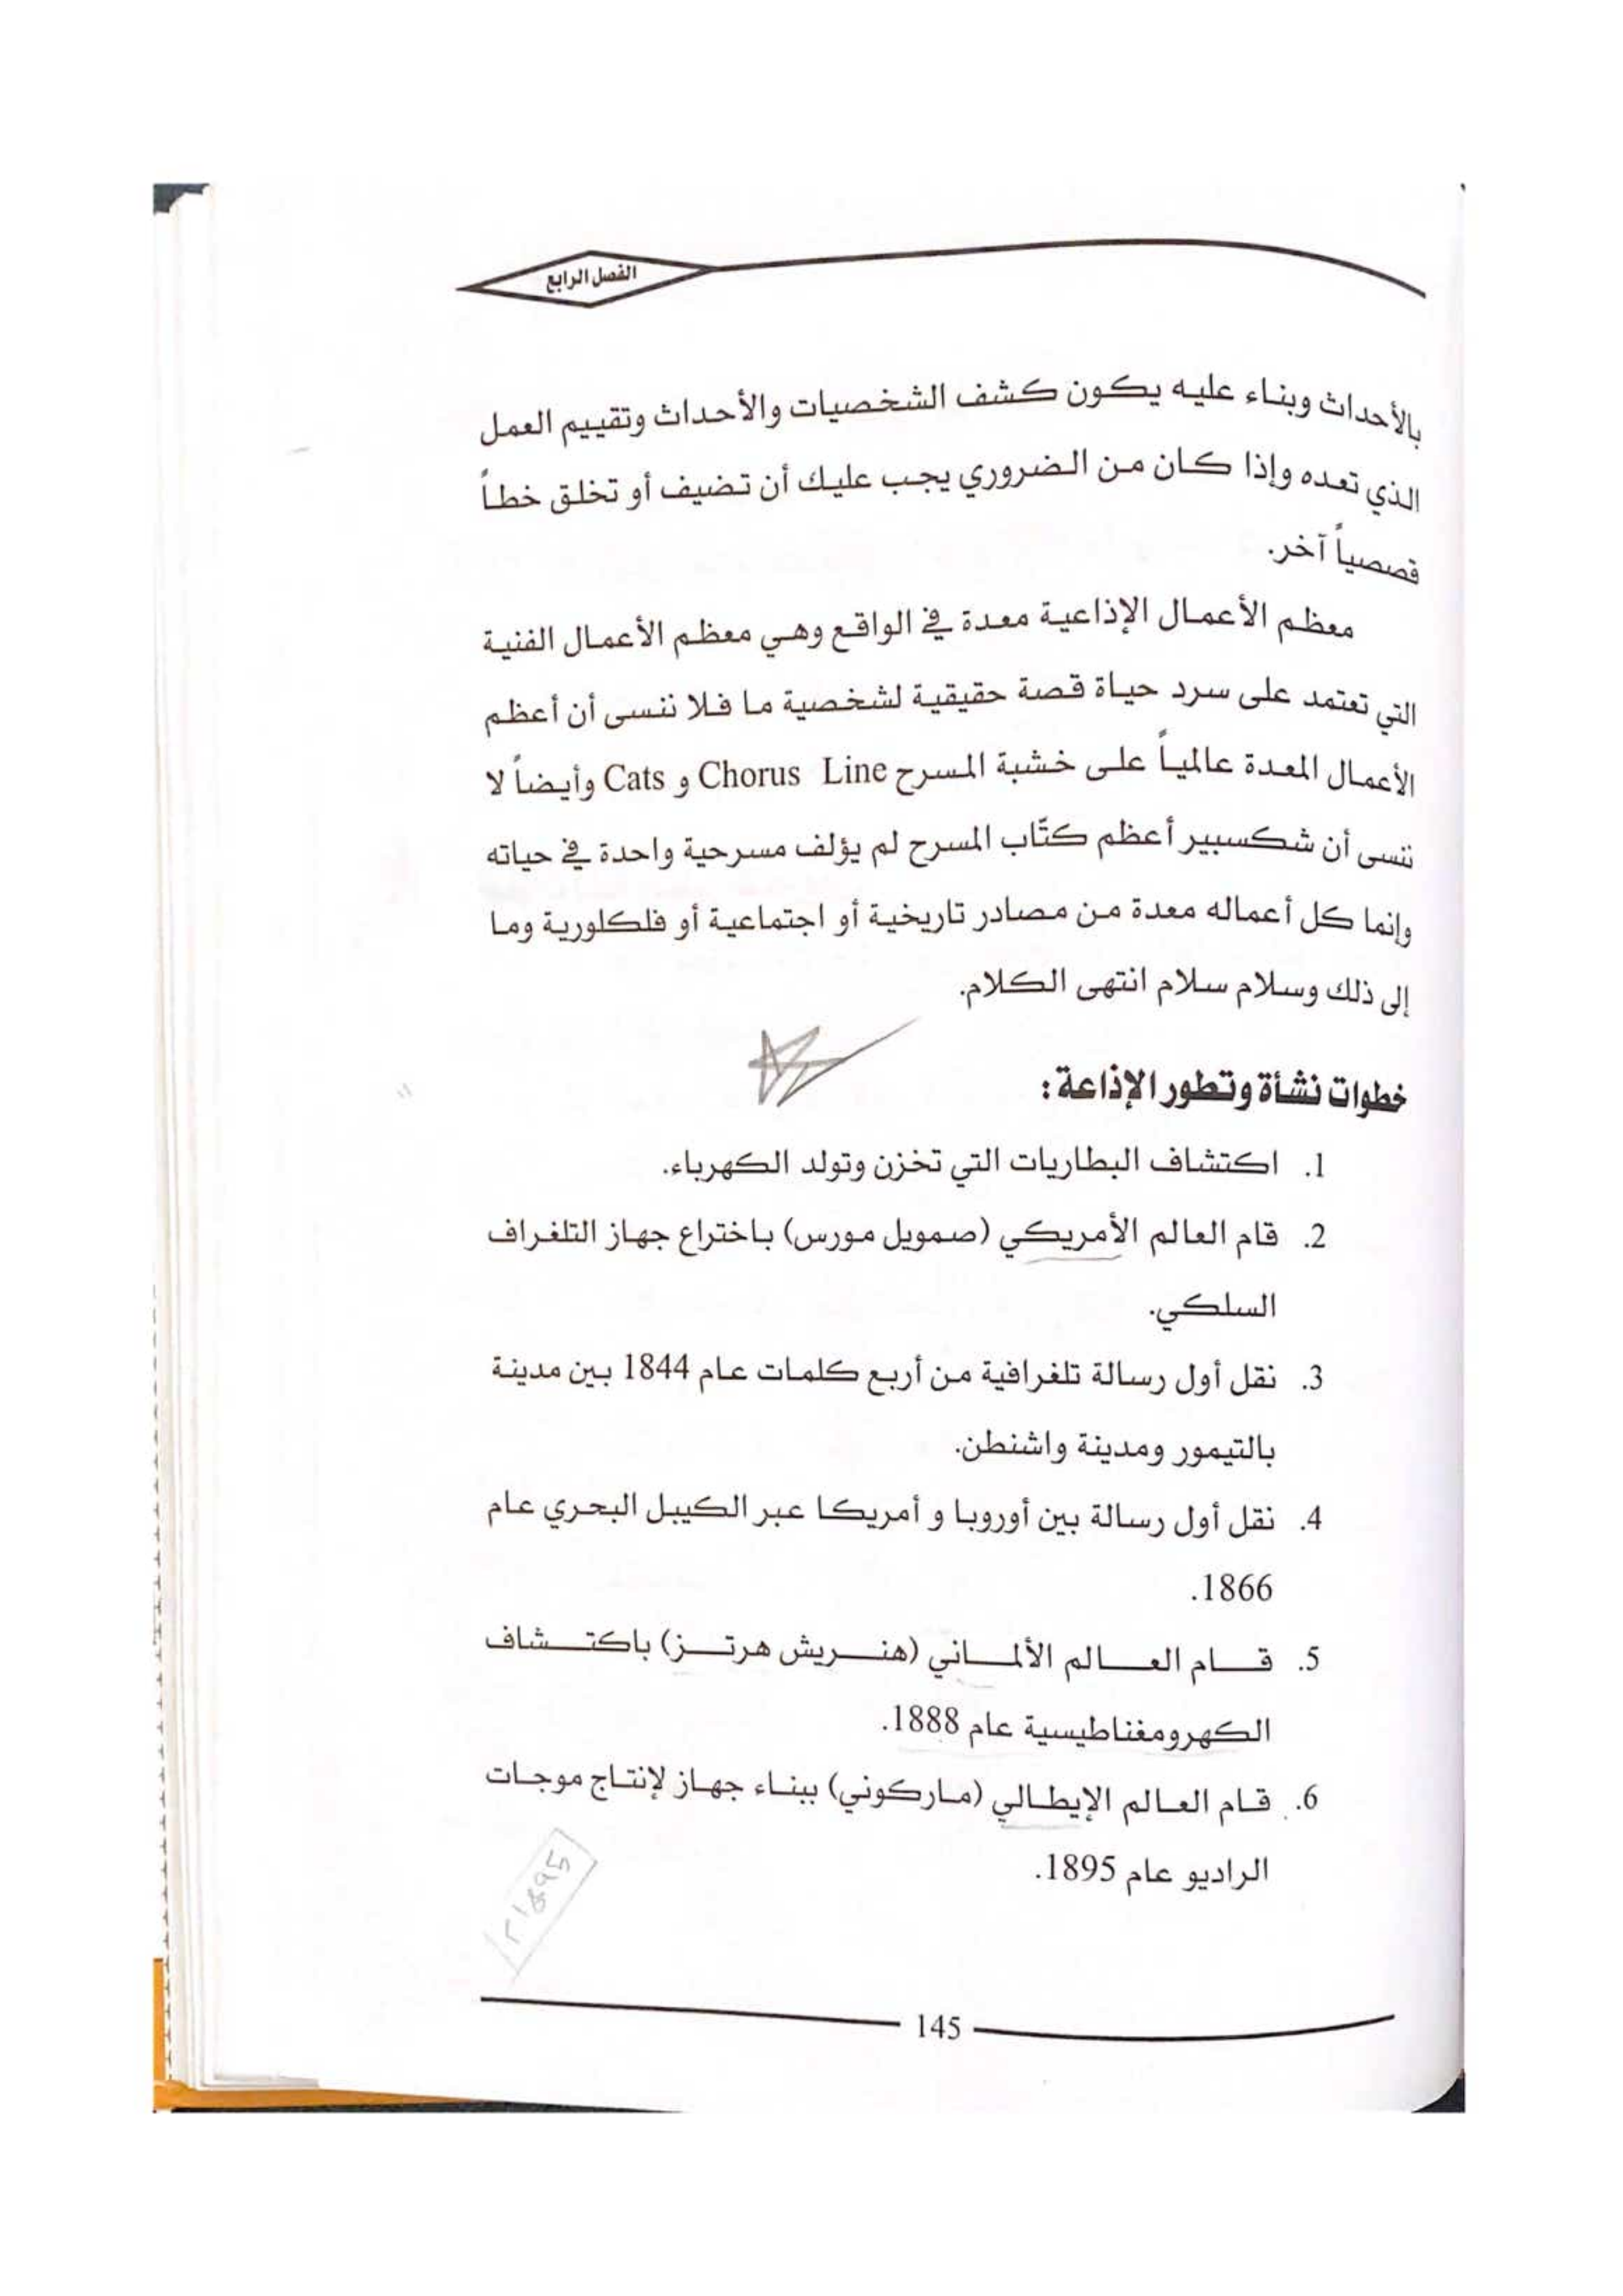 الفصل الرابع
بالأحداث وبناء عليه يكون كشف الشخصيات والأحداث وتقييم العمل
الذي تعده وإذا كان من الضروري يجب عليك أن تضيف أو تخلق خطاً
قصصياً آخر.
معظم الأعمال الإذاعية معدة في الواقع وهي معظم الأعمال الفنية
التي تعتمد على سرد حياة قصة حقيقية لشخصية ما فلا ننسى أن أعظم
الأعمال المعدة عالمياً على خشبة المسرح Chorus Line و Cats وأيضاً لا
ننسى أن شكسبير أعظم كتّاب المسرح لم يؤلف مسرحية واحدة في حياته
وإنما كل أعماله معدة من مصادر تاريخية أو اجتماعية أو فلكلورية وما
إلى ذلك وسلام سلام انتهى الكلام.
خطوات نشأة وتطور الإذاعة:
1. اكتشاف البطاريات التي تخزن وتولد الكهرباء.
2. قام العالم الأمريكي (صمويل مورس) باختراع جهاز التلغراف
السلكي.
3. نقل أول رسالة تلغرافية من أربع كلمات عام 1844 بين مدينة
بالتيمور ومدينة واشنطن.
4. نقل أول رسالة بين أوروبا و أمريكا عبر الكيبل البحري عام
1866.
5. قام العالم الألماني (هنريش هرتز) باكتشاف
الكهرومغناطيسية عام 1888.
6. قام العالم الإيطالي (ماركوني) ببناء جهاز لإنتاج موجات
الراديو عام 1895.
145